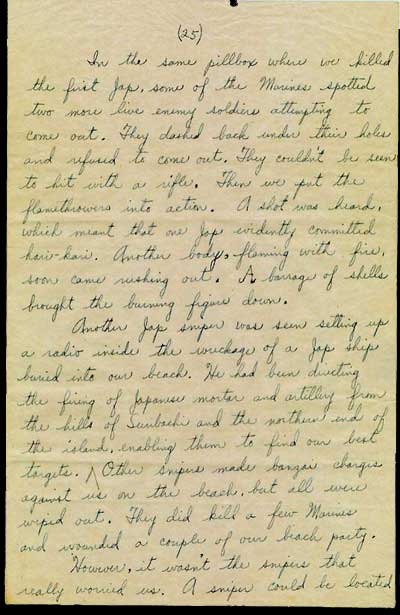 (25)
In the same pillbox where we killed
the first Jap, some of the Marines spotted
two more live enemy soldiers attempting to
come out. They dashed back under their holes
and refused to come out. They couldn't be seen
to hit with a rifle. Then we put the
flamethrowers into action. A shot was heard,
which meant that one Jap evidently committed
hari-kari. Another body, flaming with fire,
soon came rushing out. A barrage of shells
brought the burning figure down.
Another Jap sniper was seen setting up
a radio inside the wreckage of a Jap ship
buried into our beach. He had been directing
the firing of Japanese mortar and artillery from
the hills of Suribachi and the northern end of
the island, enabling them to find our best
targets. Other snipers made banzai charges
against us on the beach, but all were
wiped out. They did kill a few Marines
and wounded a couple of our beach party.
However, it wasn't the snipers that
really worried us. A sniper could be located